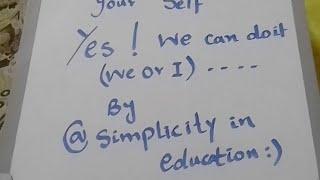 your self
Yes! We can do it
(we or I) ----
By
@ Simplicity in
education:)